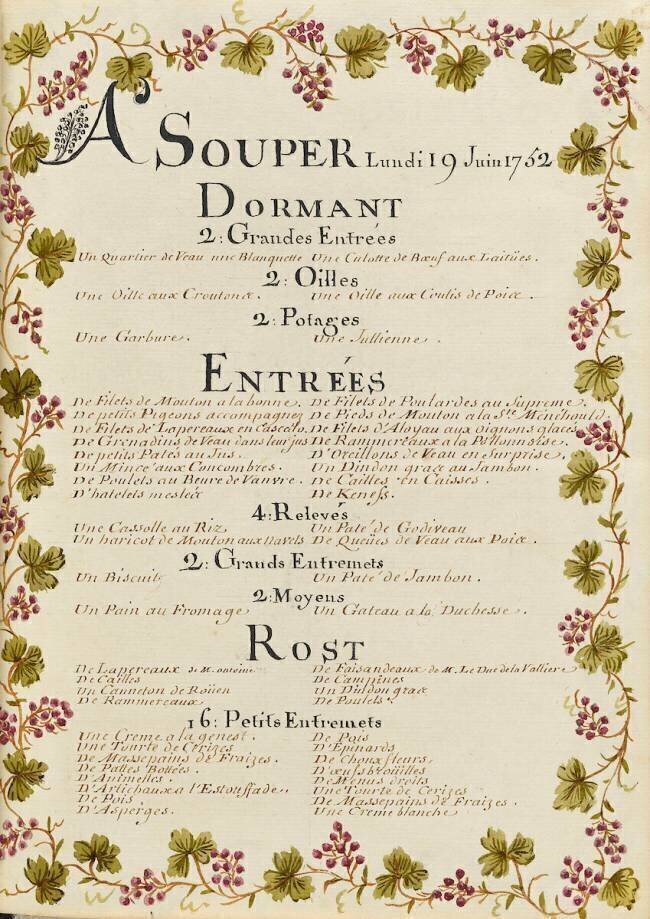 A' SOUPER Lundi 19 Juin 1752
DORMANT
2: Grandes Entrées
Un Quartier de Veau une Blanquette Une Culotte de Bœuf aux Laitües.
2: Oilles
Une Oille aux Croutons. Une Oille au Coulis de Poix.
2: Potages
Une Garbure. Une Jullienne.
ENTRÉES
De Filets de Mouton a la bonne. De Filets de Poulardes au Supreme.
De petits Pigeons accompagnez De Pieds de Mouton a la Ste. Menéhould.
De Filets de Lapereaux en Filets d'Aloyau aux oignons glacés
De Grenadins de Veau dans leur jus De Rammereaux a la
De petits Patés au Jus. D'Oreillons de Veau en Surprise.
Un Mince aux Concombres. Un Dindon gras au Jambon.
De Poulets au Beure de Vanvre. De Cailles en Caisses.
D'hatelets mesléz De Keneff.
4: Relevés
Une Cassolle au Riz Un Paté de Godiveau
Un haricot de Mouton aux navets De Queües de Veau aux Poix.
2: Grands Entremets
Un Biscuit Un Paté de Jambon.
2: Moyens
Un Pain au Fromage Un Gateau a la Duchesse.
ROST
De Lapereaux de M. De Faisandeaux de M. Le Duc de la Valliere
De Cailles De Campines
Un Canneton de Roüen Un Dindon gras
De Rammereaux De Poulets.
16: Petits Entremets
Une Creme a la genest. De Pois
Une Tourte de Cerizes D'Epinards
De Massepains de Fraizes. De Chouxfleurs.
De Pattes Bottées. D'œufs brouillés
D'Animelles. De Menus droits
D'Artichaux a l'Estouffade. Une Tourte de Cerizes
De Pois De Massepains de Fraizes.
D'Asperges. Une Creme blanche